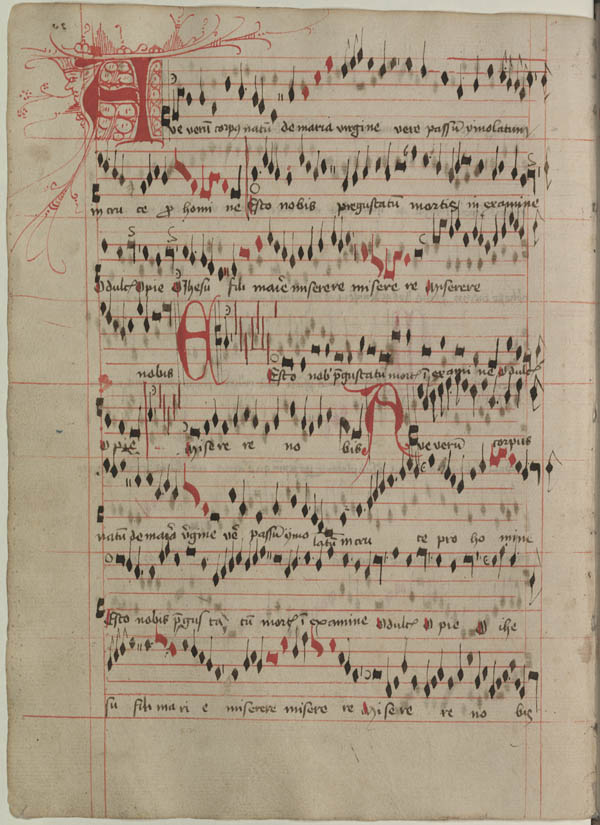 Ave verū corpꝰ natū de maria virgine vere passū ymolatum
in cru ce ꝓ homi ne Esto nobis pregustatū mortis in examine
O dulcꝭ O pie O Jhesu fili marie miserere misere re Miserere
nobis Esto nob p̄gustatū mort̄ ī examī ne O dulc̄
O pie Misere re no bis Ave verū corpus
natū de maria v̄gine ve passū ymo latū in cru ce pro ho mine
Esto nobis p̄gus ta tū mort̄ ī examine O dulc̄ O pie O ihe
su fili mari e miserere misere re Misere re no bis